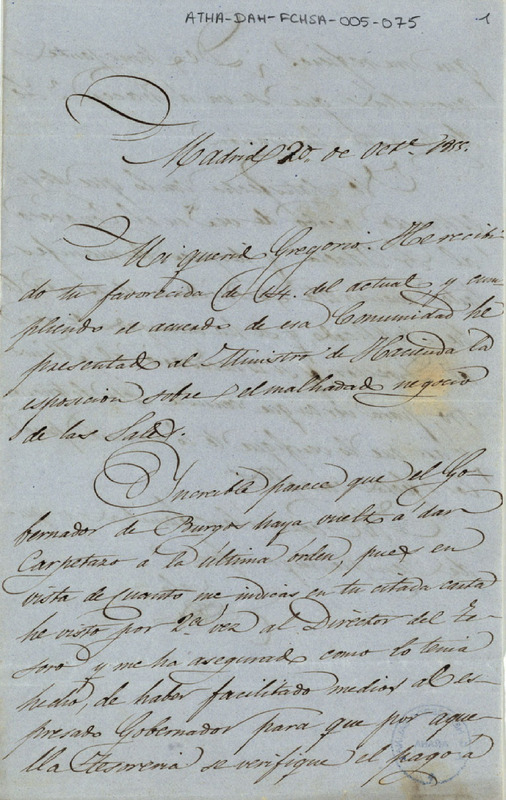 ATHA-DAH-FCHSA-005-075
1
Madrid 20 de Octe. 1855.
Mi querido Gregorio. He recibi-
do tu favorecida de 14. del actual, y cum-
pliendo el acuerdo de esa Comunidad he
presentado al Ministro de Hacienda la
esposicion sobre el malhadado negocio
de las Sales.
Increible parece que el Go-
bernador de Burgos haya vuelto a dar
Carpetazo a la última orden, pues en
vista de cuanto me indicas en tu citada carta
he visto por 2a. vez al Director del Te-
soro y me ha asegurado como lo tenia
hecho, de haber facilitado medios al es-
presado Gobernador para que por aque-
lla Tesoreria se verifique el pago á